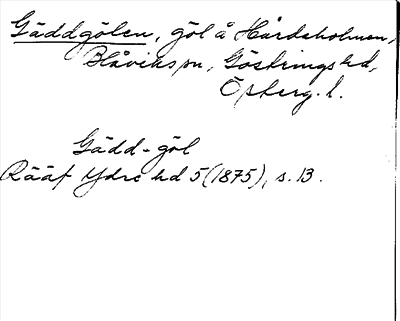 Gäddgölen, göl å Hårdaholmen,
Blåvikspn, Göstrings hd,
Östberg. l.
Gädd-göl
Rääf Ydre hd 5 (1875), s. 13.